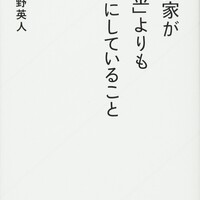 家が
金」よりも
にしていること
野英人